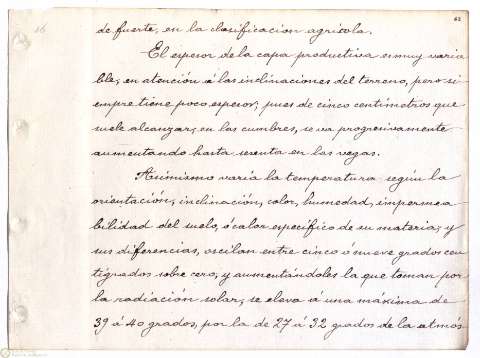 16
62
de fuerte, en la clasificacion agrícola.
El espesor de la capa productiva es muy varia
ble, en atención á las inclinaciones del terreno, pero si
empre tiene poco espesor; pues de cinco centímetros que
suele alcanzar, en las cumbres, se va progresivamente
aumentando hasta sesenta en las vegas.
Asimismo varía la temperatura según la
orientación, inclinación, color, humedad, impermea
bilidad del suelo, ó calor específico de su materia; y
sus diferencias, oscilan entre cinco ó nueve grados cen
tígrados sobre cero, y aumentándoles la que toman por
la radiación solar, se eleva á una máxima de
39 á 40 grados, por la de 27 á 32 grados de la atmós